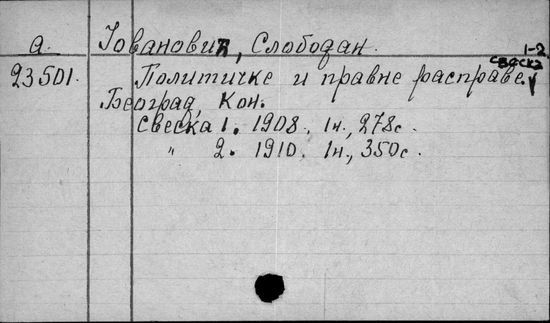 а. Јовановић, Слободан. 1-2
свеска
23501. Политичке и правне расправе.
Београд, Кон.
Свеска 1. 1908. 1н., 278с.
" 2. 1910. 1н., 350с.